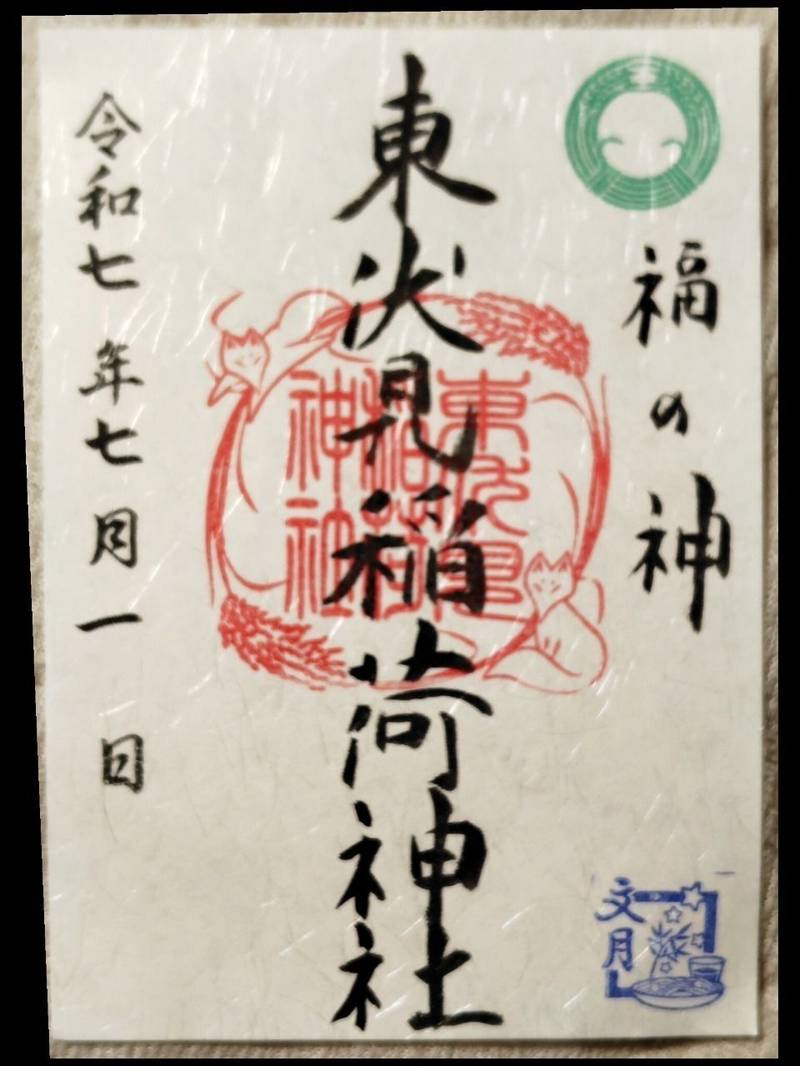 福の神
文月
東伏見稲荷神社
東伏見稲荷神社
令和七年七月一日